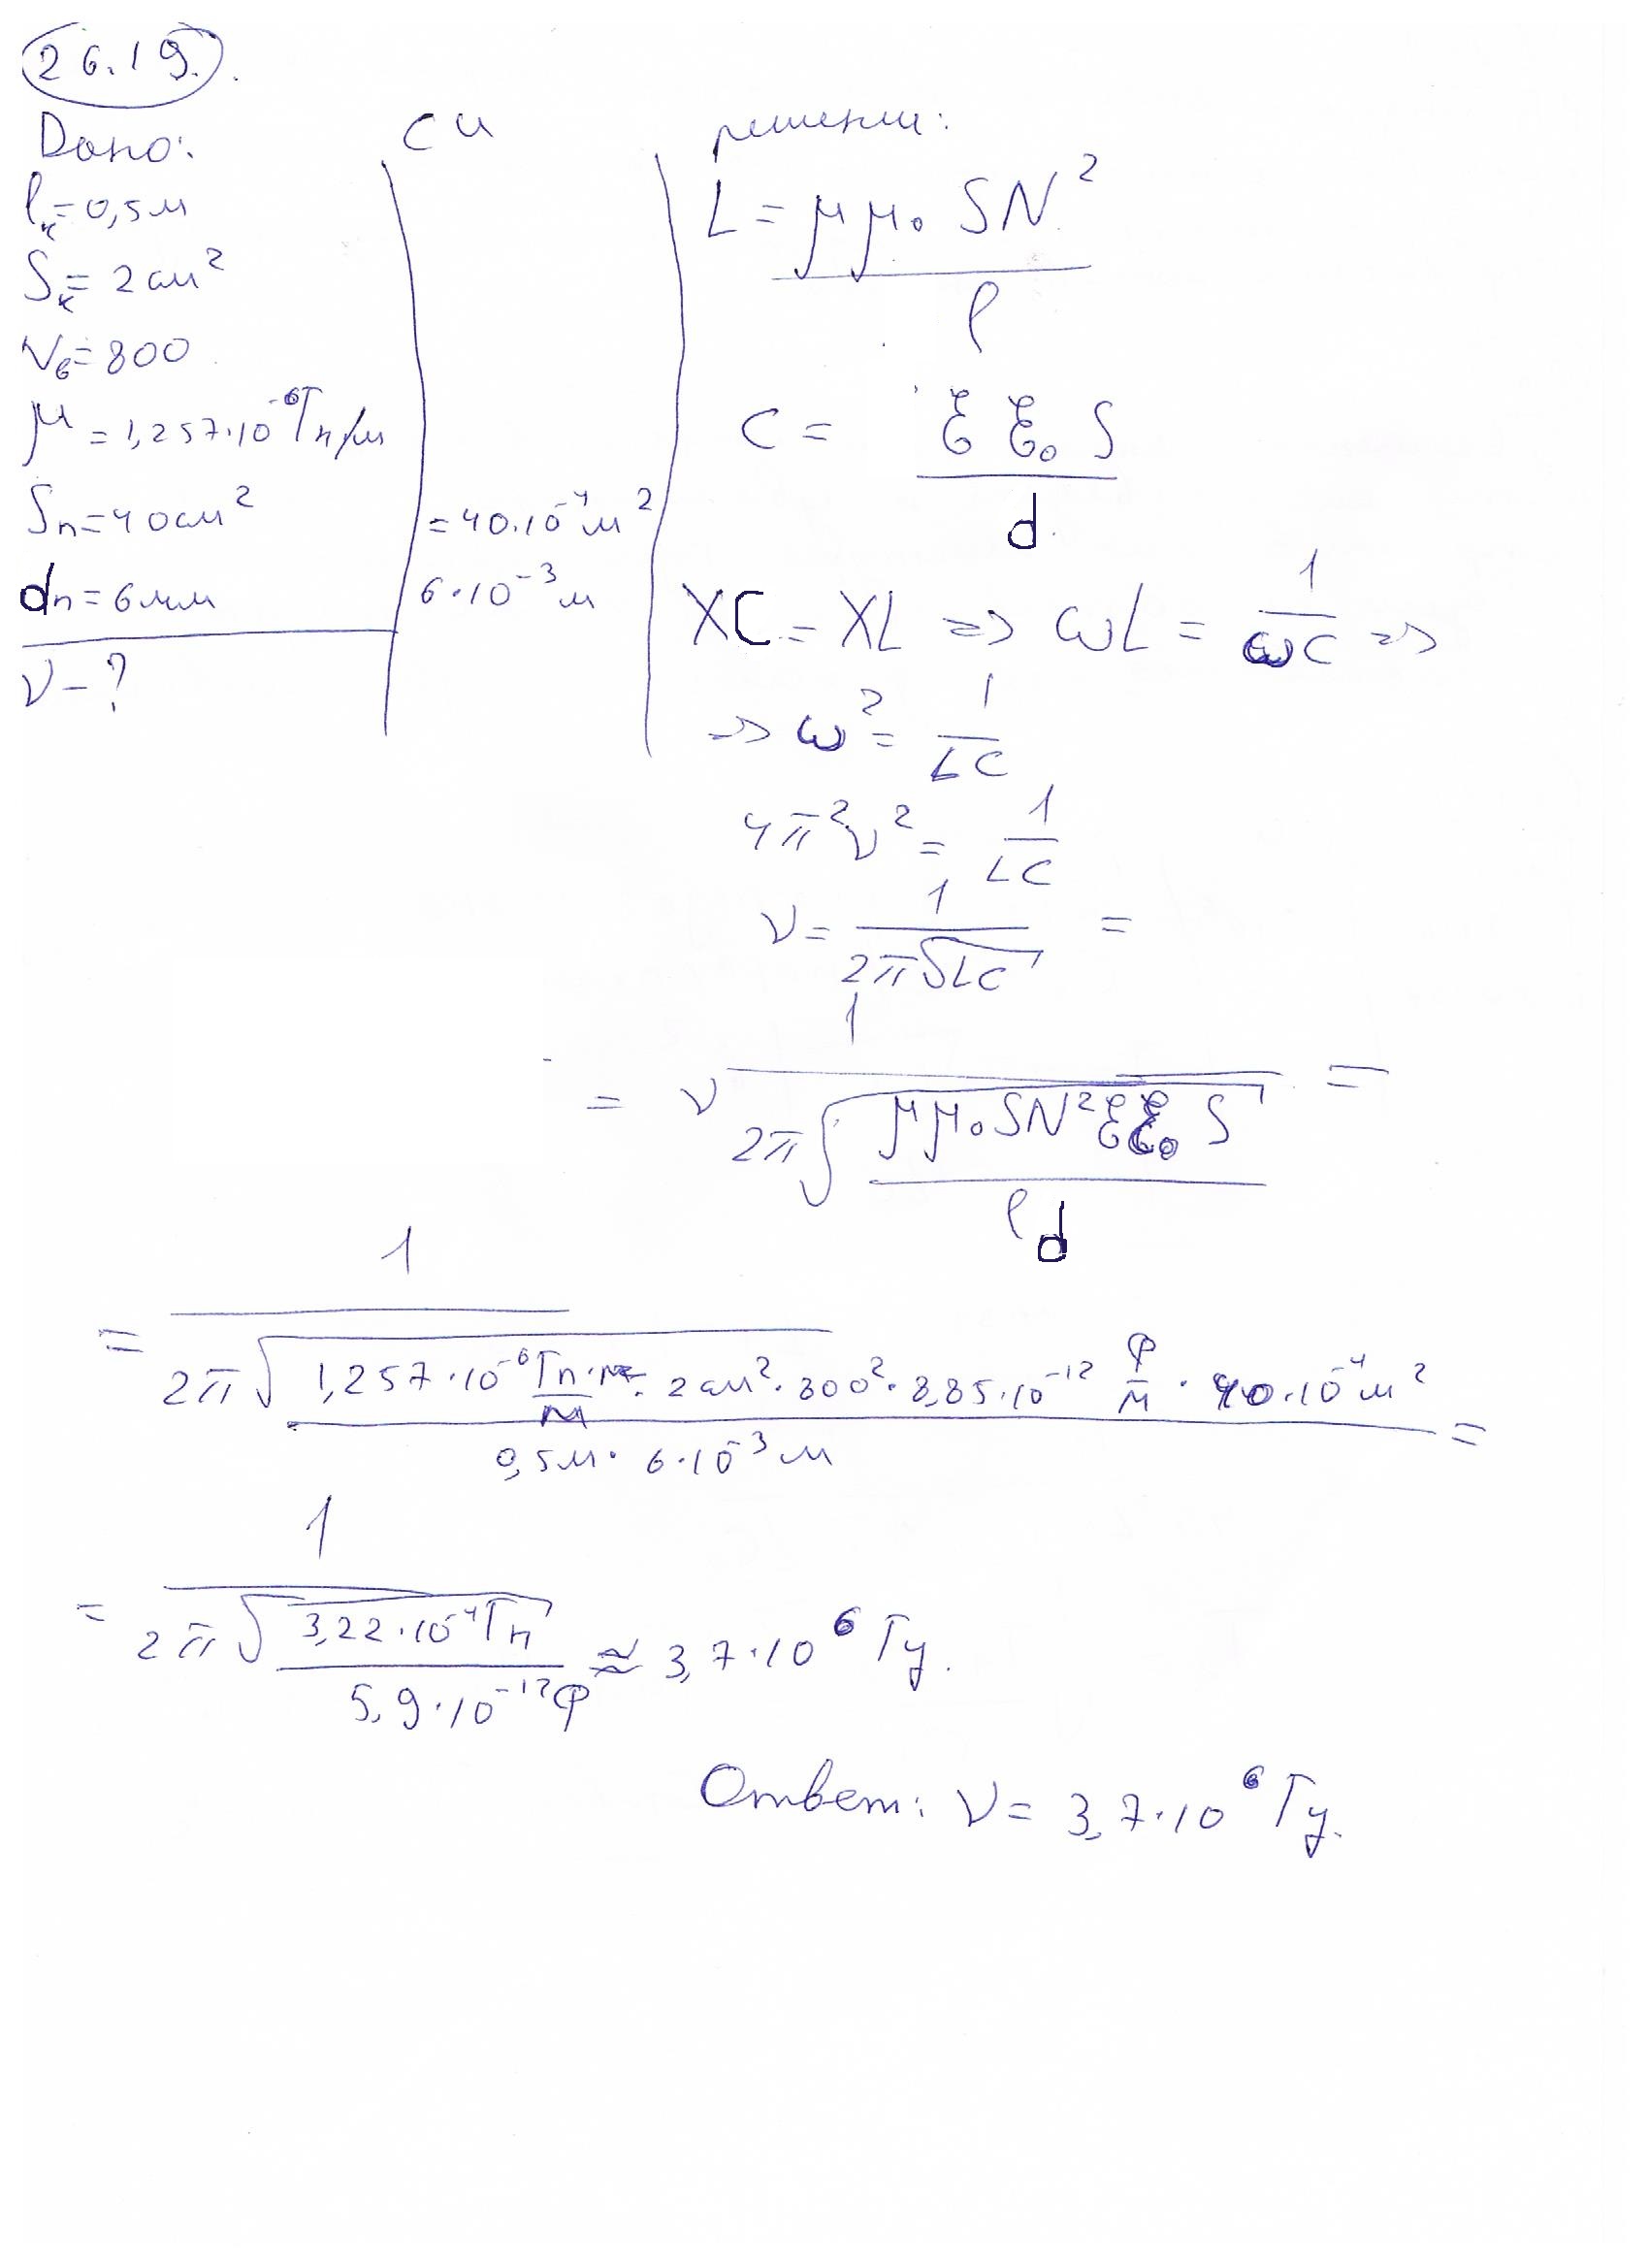 26.19.
Дано:
lк=0,5м
Sк=2см²
Nв=800
μ=1,257·10⁻⁶Гн/м
Sп=40см²
dп=6мм
ν-?
СИ
=40·10⁻⁴м²
6·10⁻³м
решении:
L=μμ₀SN²/l
C=ξξ₀S/d
XC=XL => ωL=1/ωC =>
=> ω²=1/LC
4π²ν²=1/LC
ν=1/2π√LC =
= ν 1/2π√(μμ₀SN²ξξ₀S/ld) =
= 1/2π√(1,257·10⁻⁶Гн/м·2см²·800²·8,85·10⁻¹² Ф/м·40·10⁻⁴м²/0,5м·6·10⁻³м) =
= 1/2π√(3,22·10⁻⁴Гн/5,9·10⁻¹²Ф) ≈ 3,7·10⁶ Гц.
Ответ: ν=3,7·10⁶ Гц.